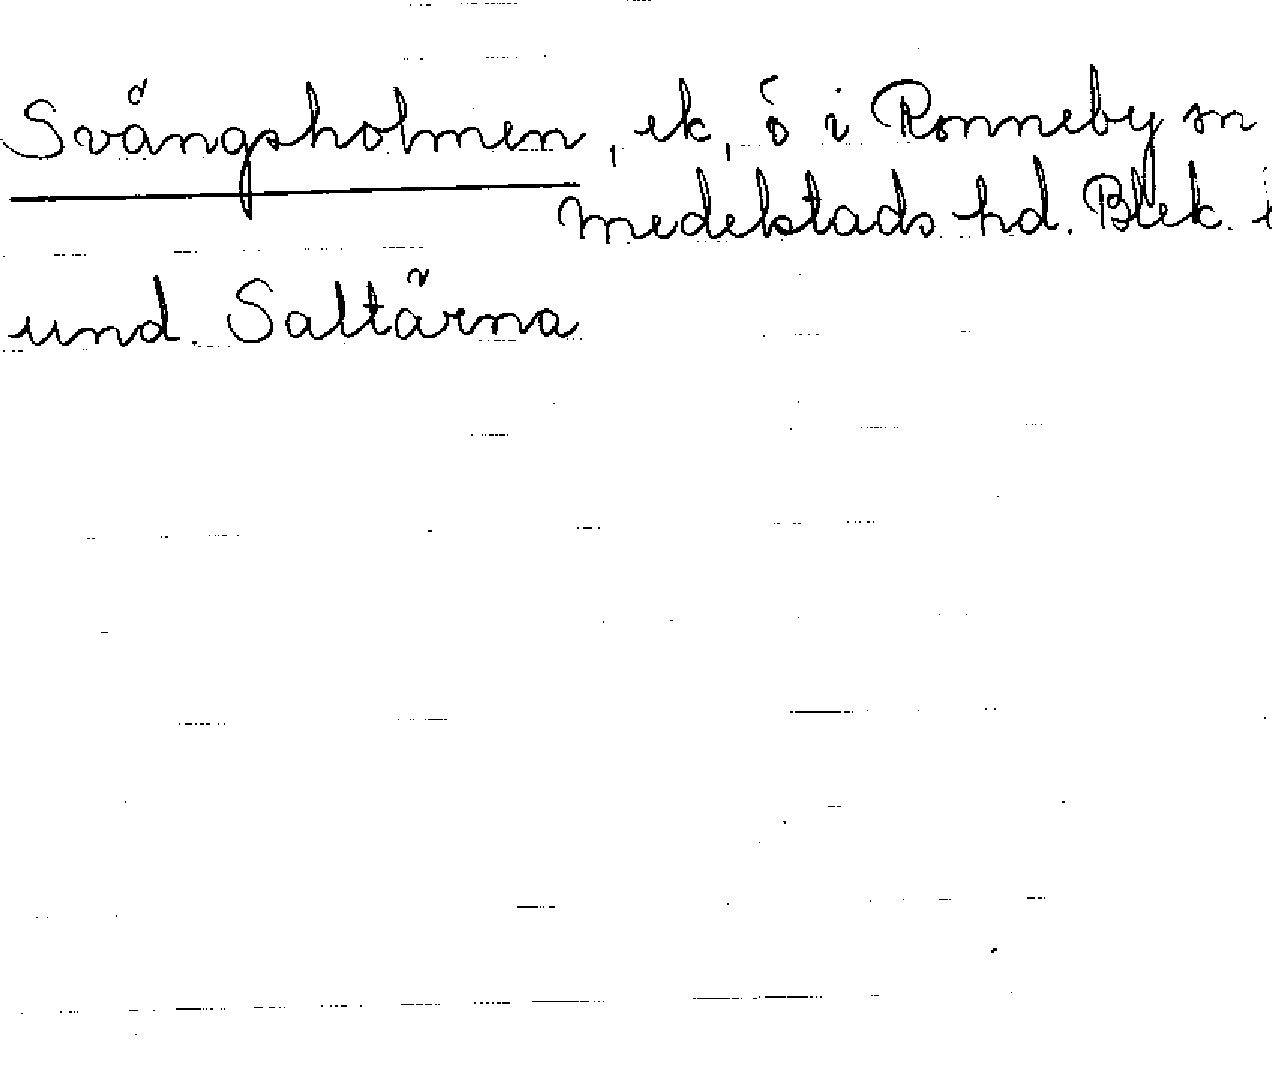 Svångsholmen, ek, ö i Ronneby sn
Medelstads hd. Blek.
und. Saltärna